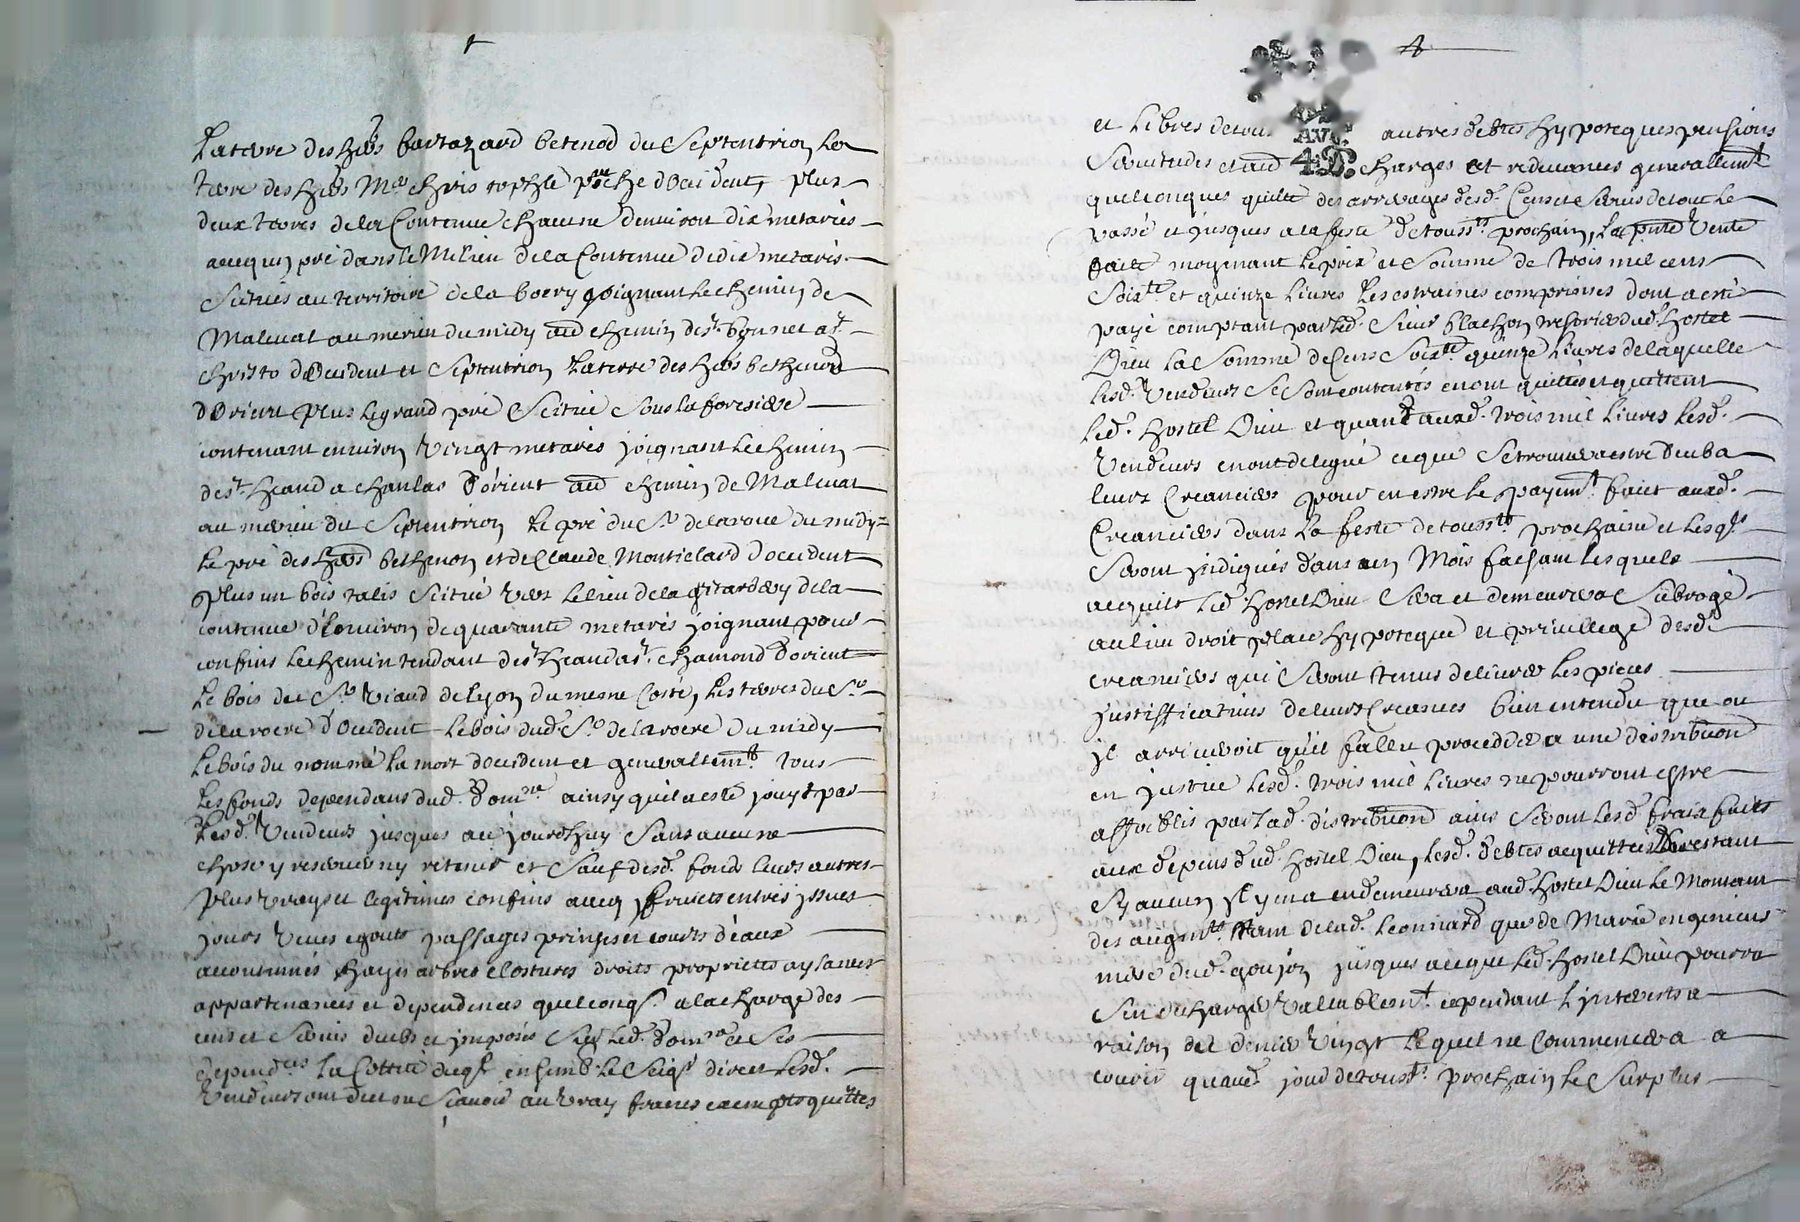 La terre des hers bartazard betenod du Septentrion La
terre des hers Mre Christophle d'occident, plus
deux terres de la Contenue chacune denviron dix metariés
avecq un pré dans le Milieu de la Contenue de dix metariés
Scitués au territoire de la boery joignant le chemin de
Malevat au merien du midy aud chemin de St. bonnet a St.
Christo d'occident et Septentrion La terre des hers bethenod
d'Orient plus le grand pré Scitué Sous la foresiere
contenant environ Vingt metariés joignant le chemin
de St. heand a chanlas d'orient aud chemin de Malevat
au merien du Septentrion Le pré du Sr. delaroue du midy
Le pré des hers bethenon et de Claude Montielard d'occident
Plus un bois talis Scitué vers le lieu de la de la
contenue d'Environ de quarante metariés joignant pour
confins le chemin tendant de St heand a St. chamond d'orient
Le bois du Sr. Viaud de Lyon du mesme Costé, Les terres du Sr.
delaroere d'occident Le bois dud. Sr. delaroere du midy
Le bois du nommé la mort d'occident et generallemt. tous
Les fonds dependans dud. domne. ainsy quil a esté jouyt par
Lesd. Vendeurs jusques aujourdhuy Sans aucune
chose y reserver ny retenir et Sauf desd. fonds leurs autres
plus vrays et legitimes confins avecq fruicts entrées issues
jours vues egouts passages prinses et cours d'eaux
accoutumés hayes arbres clostures droits proprietés aysances
appartenances et dependences quelconqs. a la charge des
cens et Servis deubs et imposés Sur led. domne et Ses
depend.ces La Cottité duql. ensemb. le Seigr. direct Lesd.
Vendeurs ont dict ne Scavoir au vray francs exempts quittes
et Libres de tous autres debtes hypoteques pensions
Servitudes et charges et redevances generallemt.
quelconques quitte des arrerages desd. Cens et Servis de tout le
passé et jusques a la feste de touss.ts prochain, La pnte Vente
faite moyenant le prix et Somme de trois mil cens
Soixte. et quinze livres Les estraines comprinses dont a esté
payé comptant par led. Sieur blachon tresorier dud. hostel
Dieu La Somme de Cens Soixte quinze livres de laquelle
lesd. Vendeurs Se Sont contentés en ont quittés et quittent
led. hostel Dieu et quant auxd. trois mil livres lesd.
Vendeurs en ont delegué ce que Se trouvera estre deub a
leurs Creanciers pour en estre le payemt. faict auxd.
Creanciers dans la feste de touss.ts prochaine et lesqls
Seront jndiqués dans un Mois faisant lesquels
acquits led. hostel Dieu Sera et demeurera Subrogé
au lieu droit place hypoteque et privillege desd.
creanciers qui Seront tenus delivrer les pieces
justifficatives de leurs Creances bien entendu que ou
jl arriveroit qu'il fallu procedder a une distribuon
en justice lesd. trois mil livres ne pourront estre
affoiblis par lad. distribuon ains Seront lesd. fraix faits
aux depens dud. hostel Dieu, lesd. debtes acquittées Le restant
Sy aucun Il y en a demeurera aud. hostel Dieu le Montant
des augmts. tant de lad. Leonnard que de Marie
mere dud. goujon jusques ace que led. hostel Dieu pourra
Sen descharger valablemt. cependant l'jnterests a
raison du denier vingt lequel ne Commencera a
courir quaud. jour de touss.ts prochain le Surplus